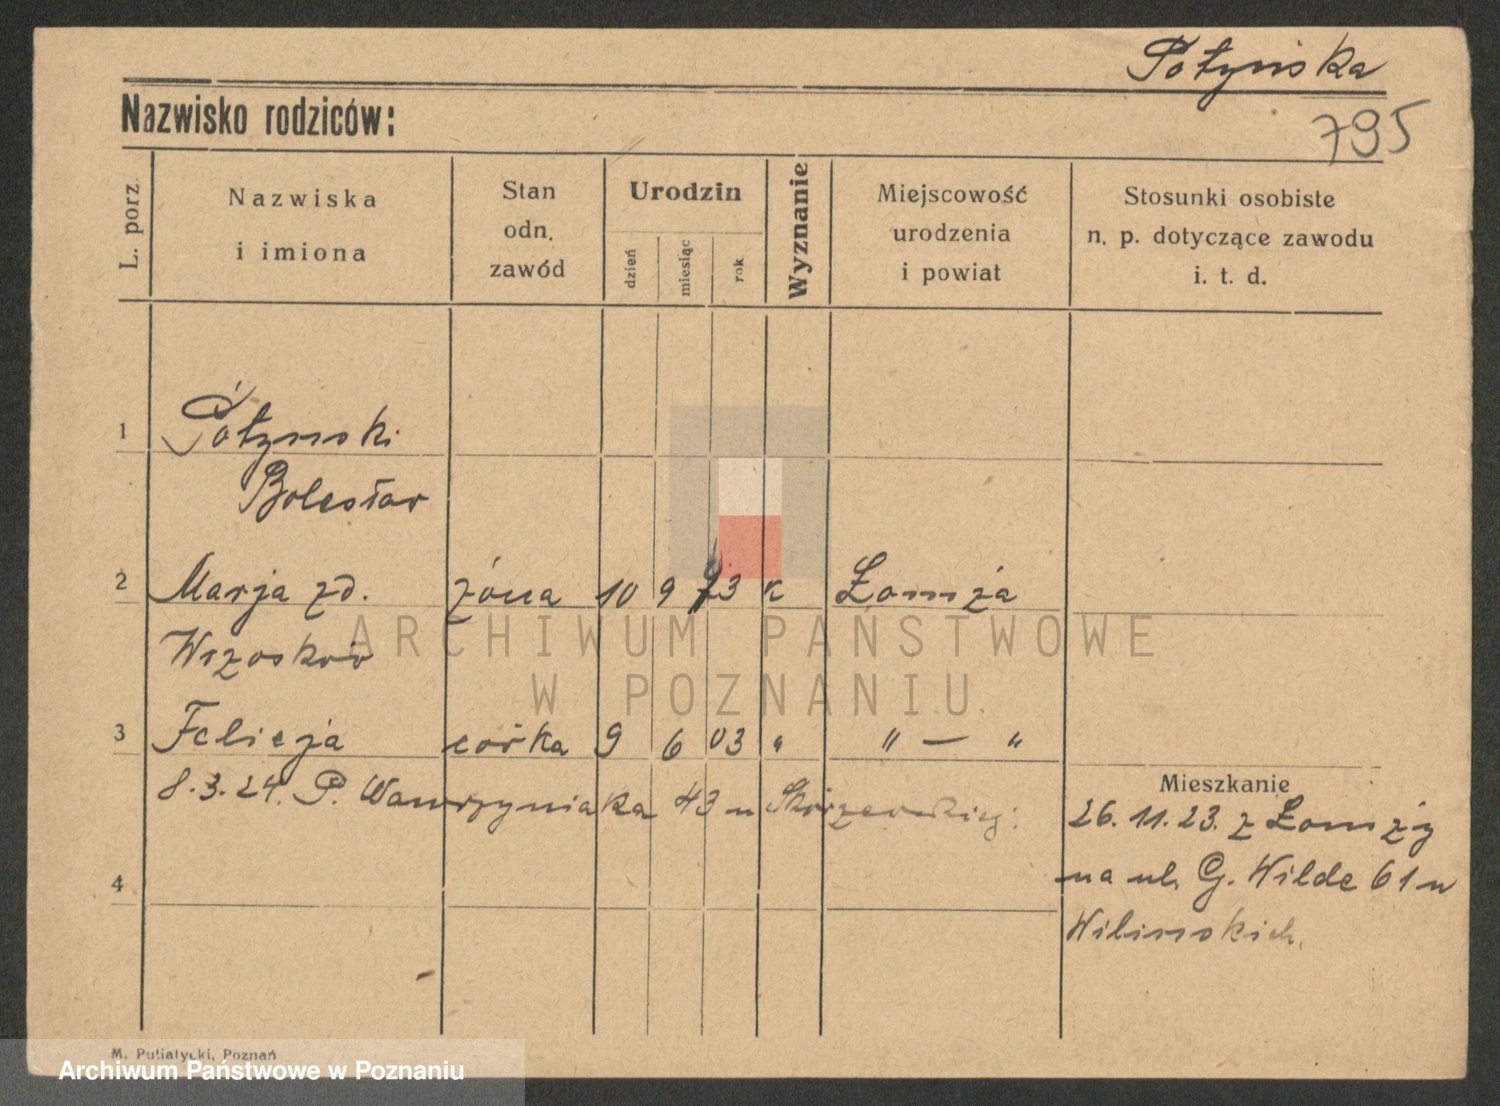 Potyńska
Nazwisko rodziców:
795
L. porz.
Nazwiska
i imiona
Stan
odn.
zawód
Urodzin
dzień
miesiąc
rok
Wyznanie
Miejscowość
urodzenia
i powiat
Stosunki osobiste
n. p. dotyczące zawodu
i. t. d.
1 Potyński
Bolesław
2 Marja zd. żona 10 9 73 k Łomża
Wrzosków
3 Felicja córka 9 6 03 " " — "
8.3.24. P. Wawrzyniaka 43 u
Mieszkanie
26.11.23. z Łomży
na ul. G. Wilde 61 u
Wilinskich.
4
M. Putiatycki, Poznań
ARCHIWUM PAŃSTWOWE
W POZNANIU
Archiwum Państwowe w Poznaniu